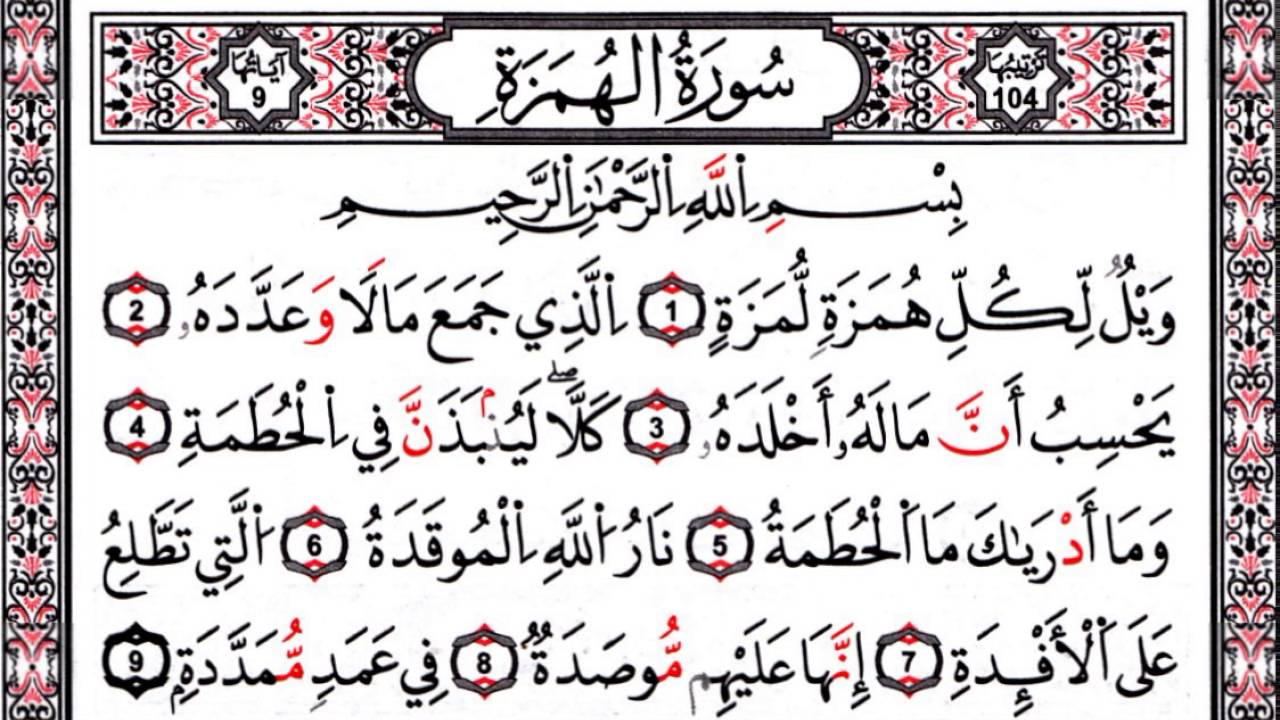 ترتيبها 104 سُورَةُ الهُمَزَةِ آيَاتُهَا 9
بِسْمِ اِللَّهِ اِلرَّحْمَٰنِ اِلرَّحِيمِ
وَيْلٌ لِّكُلِّ هُمَزَةٍ لُّمَزَةٍ 1 اِلَّذِي جَمَعَ مَالًا وَعَدَّدَهُۥ 2
يَحْسِبُ أَنَّ مَالَهُۥ أَخْلَدَهُۥ 3 كَلَّا ۖ لَيُنۢبَذَنَّ فِي اِلْحُطَمَةِ 4
وَمَا أَدْرَيٰكَ مَا اَلْحُطَمَةُ 5 نَارُ اُللَّهِ اِلْمُوقَدَةُ 6 اَلَّتِي تَطَّلِعُ
عَلَى اَلْأَفْـِٕدَةِ 7 إِنَّهَا عَلَيْهِم مُّوصَدَةٌ 8 فِي عَمَدٍ مُّمَدَّدَةٍۭ 9